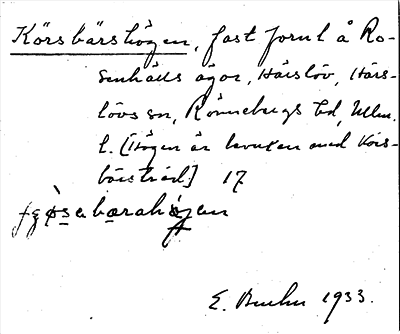 Körsbärshögen, fast fornl å Ro-
senhälls ägor, Härslöv, Härs-
lövs sn, Rönnebergs hd, Malm.
l. [Högen är bevuxen med Körs-
bärsträd.] 17
E. Bruhn 1933.